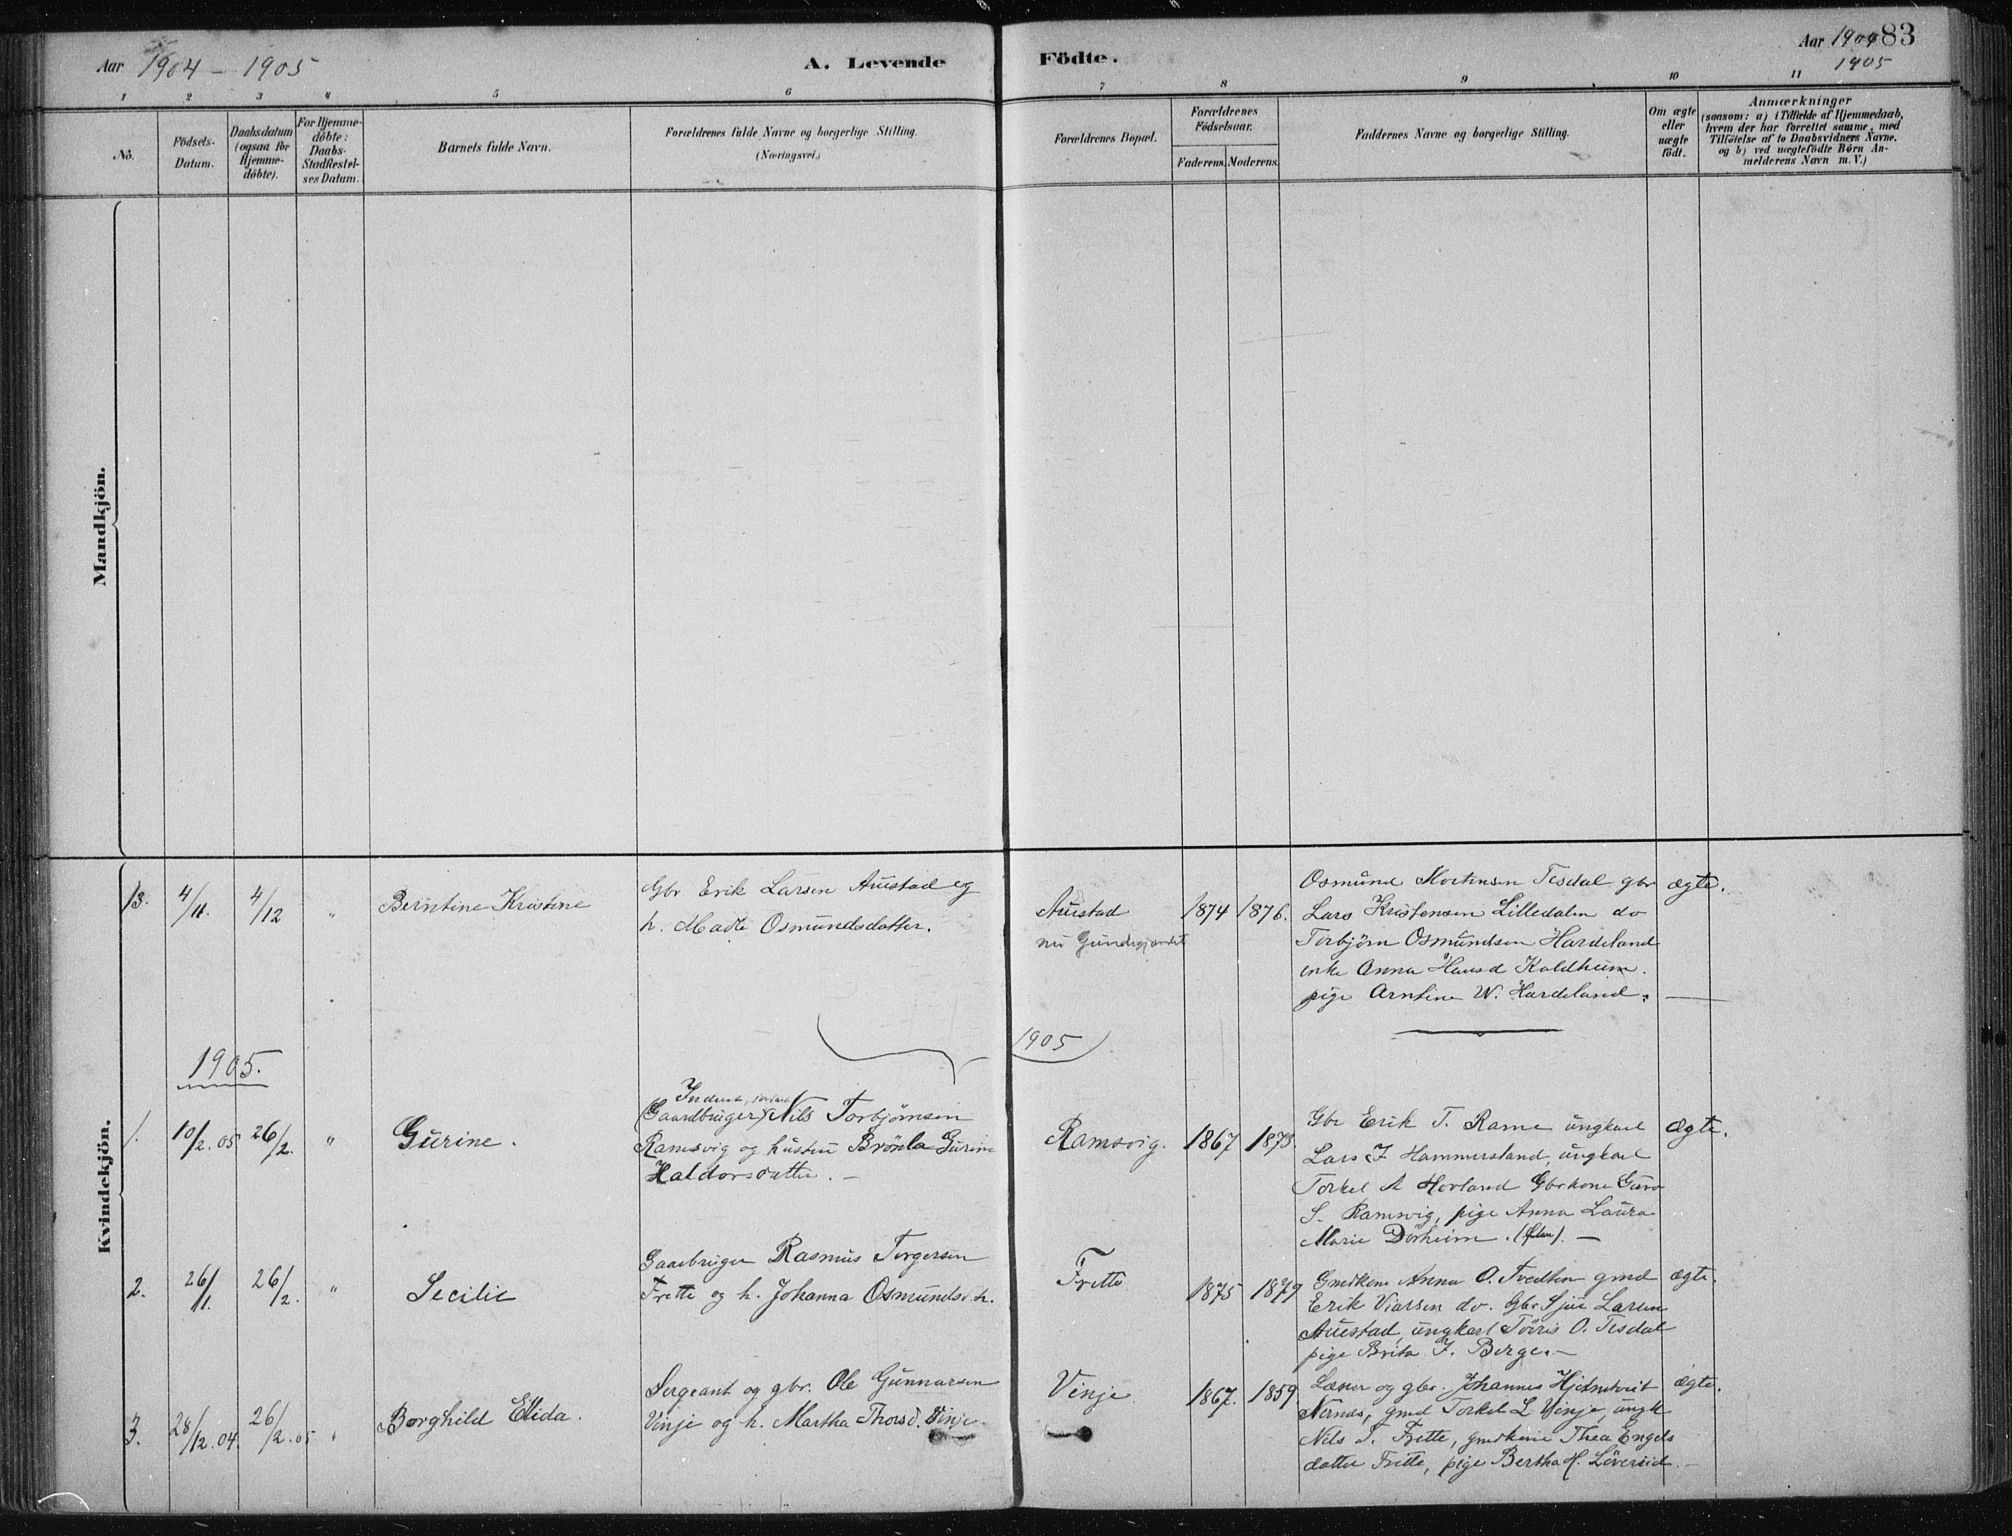 Aar 1904 - 1905
A. Levende Födte.
Aar 1904 83
1905
1 2 3 4 5 6 7 8 9 10 11
No.
Födsels-
Datum.
Daabsdatum
(ogsaa for
Hjemme-
döbte).
For Hjemme-
döbte:
Daabs-
Stadfæstel-
ses Datum.
Barnets fulde Navn.
Forældrenes fulde Navne og borgerlige Stilling.
(Næringsvei.)
Forældrenes Bopæl.
Forældrenes
Födselsaar.
Faderens. Moderens.
Faddernes Navne og borgerlige Stilling.
Om ægte
eller
uægte
födt.
Anmærkninger
(saasom: a) i Tilfælde af Hjemmedaab,
hvem der har forrettet samme, med
Tilföielse af to Daabsvidners Navne.
og b) ved uægtefödte Börn An-
melderens Navn m. V.)
Mandkjön.
Kvindekjön.
13. 4/11. 4/12 " Berntine Kristine
Gbr Erik Larsen Austad og
h. Madli Osmundsdatter.
Austad
nu
1874 1876.
Osmund Mortensen Tesdal gbr
Lars Kristensen Lilledalen do
Torbjørn Osmundsen Hardeland
enke Anna Hansd Koldheim.
pige Arntine W. Hardeland.
ægte.
1905.
1905
1. 10/2.05 26/2. " Gurine.
(Gaardbruger) Nils Torbjørnsen
Ramsvig og hustru Brönla Gurine
Haldorsdatter. -
Ramsvig.
1867 1873.
Gbr Erik T. Rame ungkarl
Lars J Hammersland, ungkarl
Torkel A Hovland Gbrkone Guro
S. Ramsvig, pige Anna Laura
Marie Dörheim. -
Ægte.
2. 26/11. 26/2. " Secilie
Gaarbruger Rasmus Torgersen
Frette og h. Johanna Osmundsd.
Frette
1875 1879
Gmdkone Anna O. Tvedten gmd
Erik Viarsen do. Gbr Sjur Larsen
Austad, ungkarl Torris O. Tesdal
pige Brita J. Berge. -
ægte.
3. 28/12.04. 26/2.05 " Borghild Elida.
Sergeant og gbr. Ole Gunnarsen
Vinje og h. Martha Thorsd. Vinje.
Vinje
1867. 1859.
Lærer og gbr. Johannes
Nernæs, gmd Torkel L Vinje, ungk
Nils T. Frette, gmdkone Thea Engels
datter Frette, pige Bertha H. Lövereid. -
ægte.